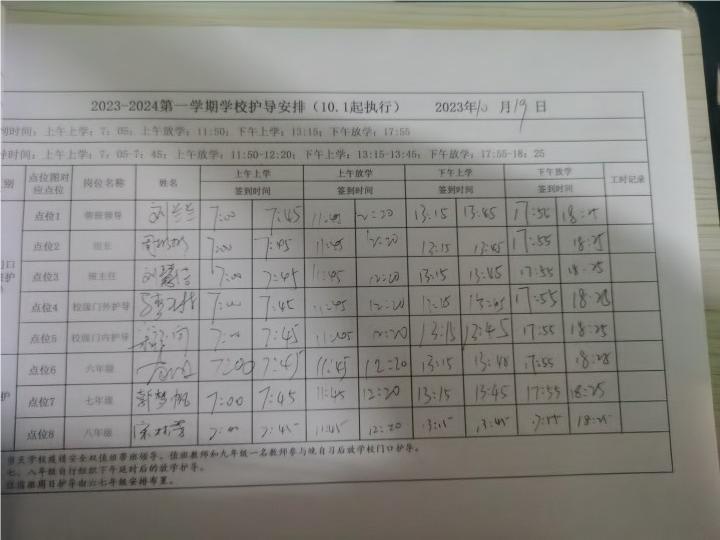 2023-2024第一学期学校护导安排（10.1起执行） 2023年10月19日
时间：上午上学：7：05；上午放学：11:50；下午上学：13:15；下午放学：17:55
时间：上午上学：7：05-7：45；上午放学：11:50-12:20；下午上学：13:15-13:45；下午放学：17:55-18：25
别 点位图对应点位 岗位名称 姓名 上午上学 上午放学 下午上学 下午放学 工时记录
签到时间 签到时间 签到时间 签到时间
点位1 带班领导 刘兰兰 7:00 7:45 11:45 12:20 13:15 13:45 17:55 18:25
点位2 组长 7:00 7:45 11:45 12:20 13:15 13:45 17:55 18:25
点位3 班主任 7:00 7:45 11:45 12:20 13:15 13:45 17:55 18:25
点位4 校级门外护导 7:00 7:45 11:45 12:20 13:15 13:45 17:55 18:25
点位5 校级门内护导 7:00 7:45 12:20 13:15 13:45 17:55 18:25
点位6 六年级 7:00 7:45 11:45 12:20 13:15 13:45 17:55 18:28
点位7 七年级 郭梦帆 7:00 7:45 11:45 12:20 13:15 13:45 17:55 18:25
点位8 八年级 7:00 7:45 11:45 12:20 13:15 13:45 17:55 18:25
当天学校疫情安全双值组带班领导、值班教师和九年级一名教师参与晚自习后放学校门口护导。
七、八年级自行组织下午延时后的放学护导。
周日护导由六七年级安排布置。